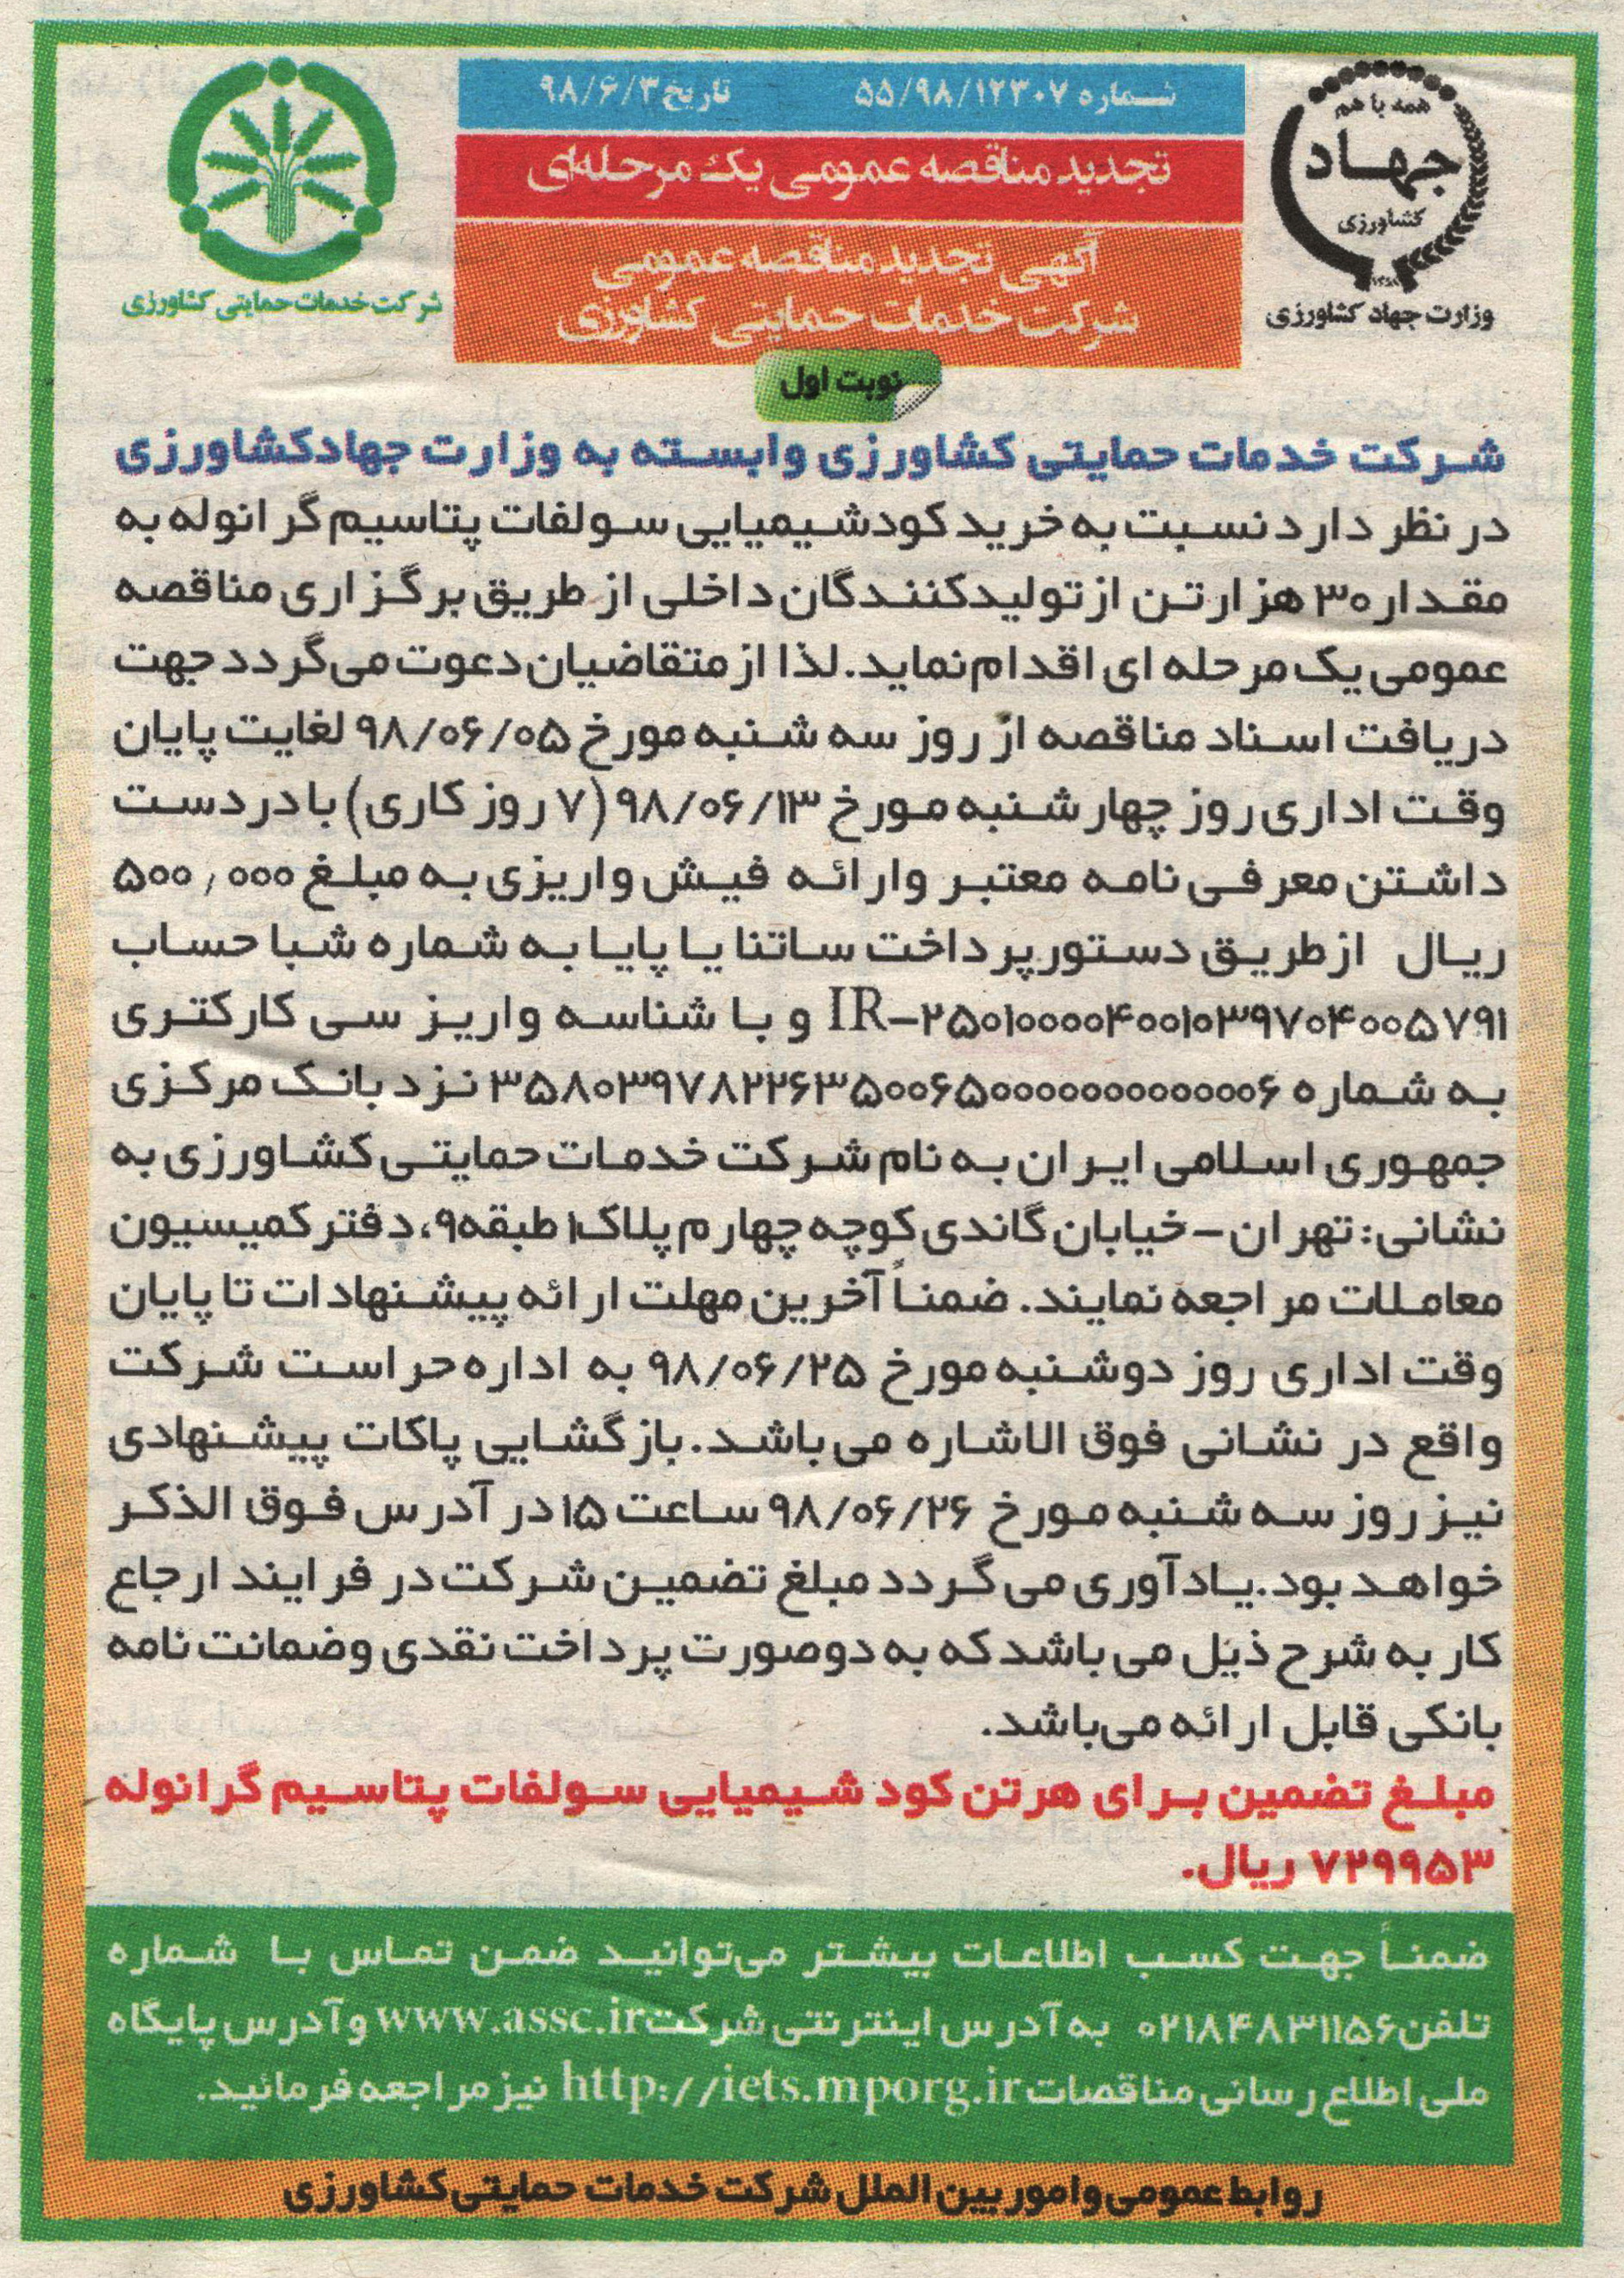 همه با هم
جهاد
کشاورزی
وزارت جهاد کشاورزی
شماره ۵۵/۹۸/۱۲۳۰۷ تاریخ ۹۸/۶/۳
تجدید مناقصه عمومی یک مرحله‌ای
آگهی تجدید مناقصه عمومی
شرکت خدمات حمایتی کشاورزی
شرکت خدمات حمایتی کشاورزی
نوبت اول
شرکت خدمات حمایتی کشاورزی وابسته به وزارت جهادکشاورزی
در نظر دارد نسبت به خرید کودشیمیایی سولفات پتاسیم گرانوله به
مقدار ۳۰ هزارتن از تولیدکنندگان داخلی از طریق برگزاری مناقصه
عمومی یک مرحله ای اقدام نماید. لذا از متقاضیان دعوت می‌گردد جهت
دریافت اسناد مناقصه از روز سه شنبه مورخ ۹۸/۰۶/۰۵ لغایت پایان
وقت اداری روز چهارشنبه مورخ ۹۸/۰۶/۱۳ (۷ روز کاری) با در دست
داشتن معرفی نامه معتبر وارائه فیش واریزی به مبلغ ۵۰۰,۰۰۰
ریال ازطریق دستورپرداخت ساتنا یا پایا به شماره شبا حساب
IR-۲۵۰۱۰۰۰۰۴۰۰۱۰۳۹۷۰۴۰۰۵۷۹۱ و با شناسه واریز سی کارکتری
به شماره ۳۵۸۰۳۹۷۸۲۲۶۳۵۰۰۶۵۰۰۰۰۰۰۰۰۰۰۰۰۶ نزد بانک مرکزی
جمهوری اسلامی ایران به نام شرکت خدمات حمایتی کشاورزی به
نشانی: تهران- خیابان گاندی کوچه چهارم پلاک۱ طبقه۹، دفتر کمیسیون
معاملات مراجعه نمایند. ضمناً آخرین مهلت ارائه پیشنهادات تا پایان
وقت اداری روز دوشنبه مورخ ۹۸/۰۶/۲۵ به اداره حراست شرکت
واقع در نشانی فوق الاشاره می باشد. بازگشایی پاکات پیشنهادی
نیز روز سه شنبه مورخ ۹۸/۰۶/۲۶ ساعت ۱۵ در آدرس فوق الذکر
خواهد بود. یادآوری می گردد مبلغ تضمین شرکت در فرایند ارجاع
کار به شرح ذیل می باشد که به دوصورت پرداخت نقدی وضمانت نامه
بانکی قابل ارائه می‌باشد.
مبلغ تضمین برای هرتن کود شیمیایی سولفات پتاسیم گرانوله
۷۲۹۹۵۳ ریال.
ضمناً جهت کسب اطلاعات بیشتر می‌توانید ضمن تماس با شماره
تلفن۰۲۱۸۴۸۳۱۱۵۶ به آدرس اینترنتی شرکت www.assc.ir وآدرس پایگاه
ملی اطلاع رسانی مناقصات http://iets.mporg.ir نیز مراجعه فرمائید.
روابط عمومی و امور بین الملل شرکت خدمات حمایتی کشاورزی